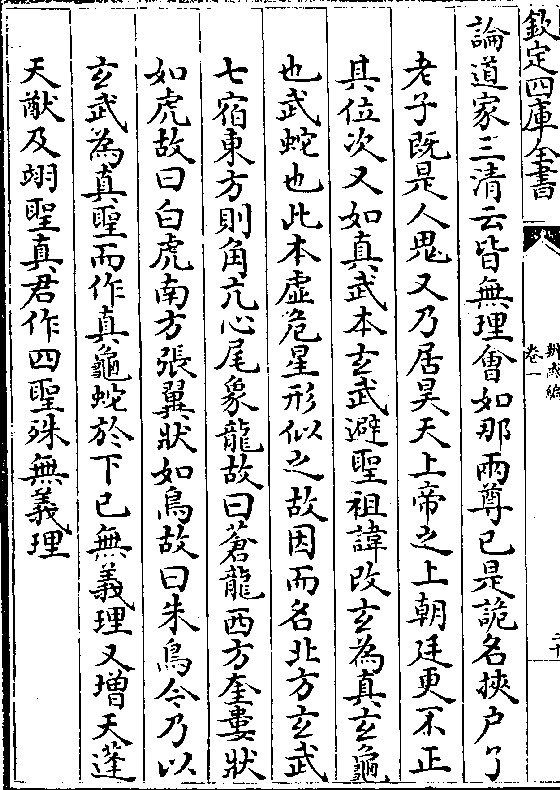 欽定四庫全書
辨惑編
卷一
二十
論道家三清云皆無理會如那兩尊已是詭名挾户了
老子既是人鬼又乃居昊天上帝之上朝廷更不正
其位次又如真武本玄武避聖祖諱改玄為真玄龜
也武蛇也此本虛危星形似之故因而名北方玄武
七宿東方則角亢心尾象龍故曰蒼龍西方奎婁狀
如虎故曰白虎南方張翼狀如鳥故曰朱鳥今乃以
玄武為真聖而作真龜蛇於下已無義理又增天蓬
天猷及翊聖真君作四聖殊無義理